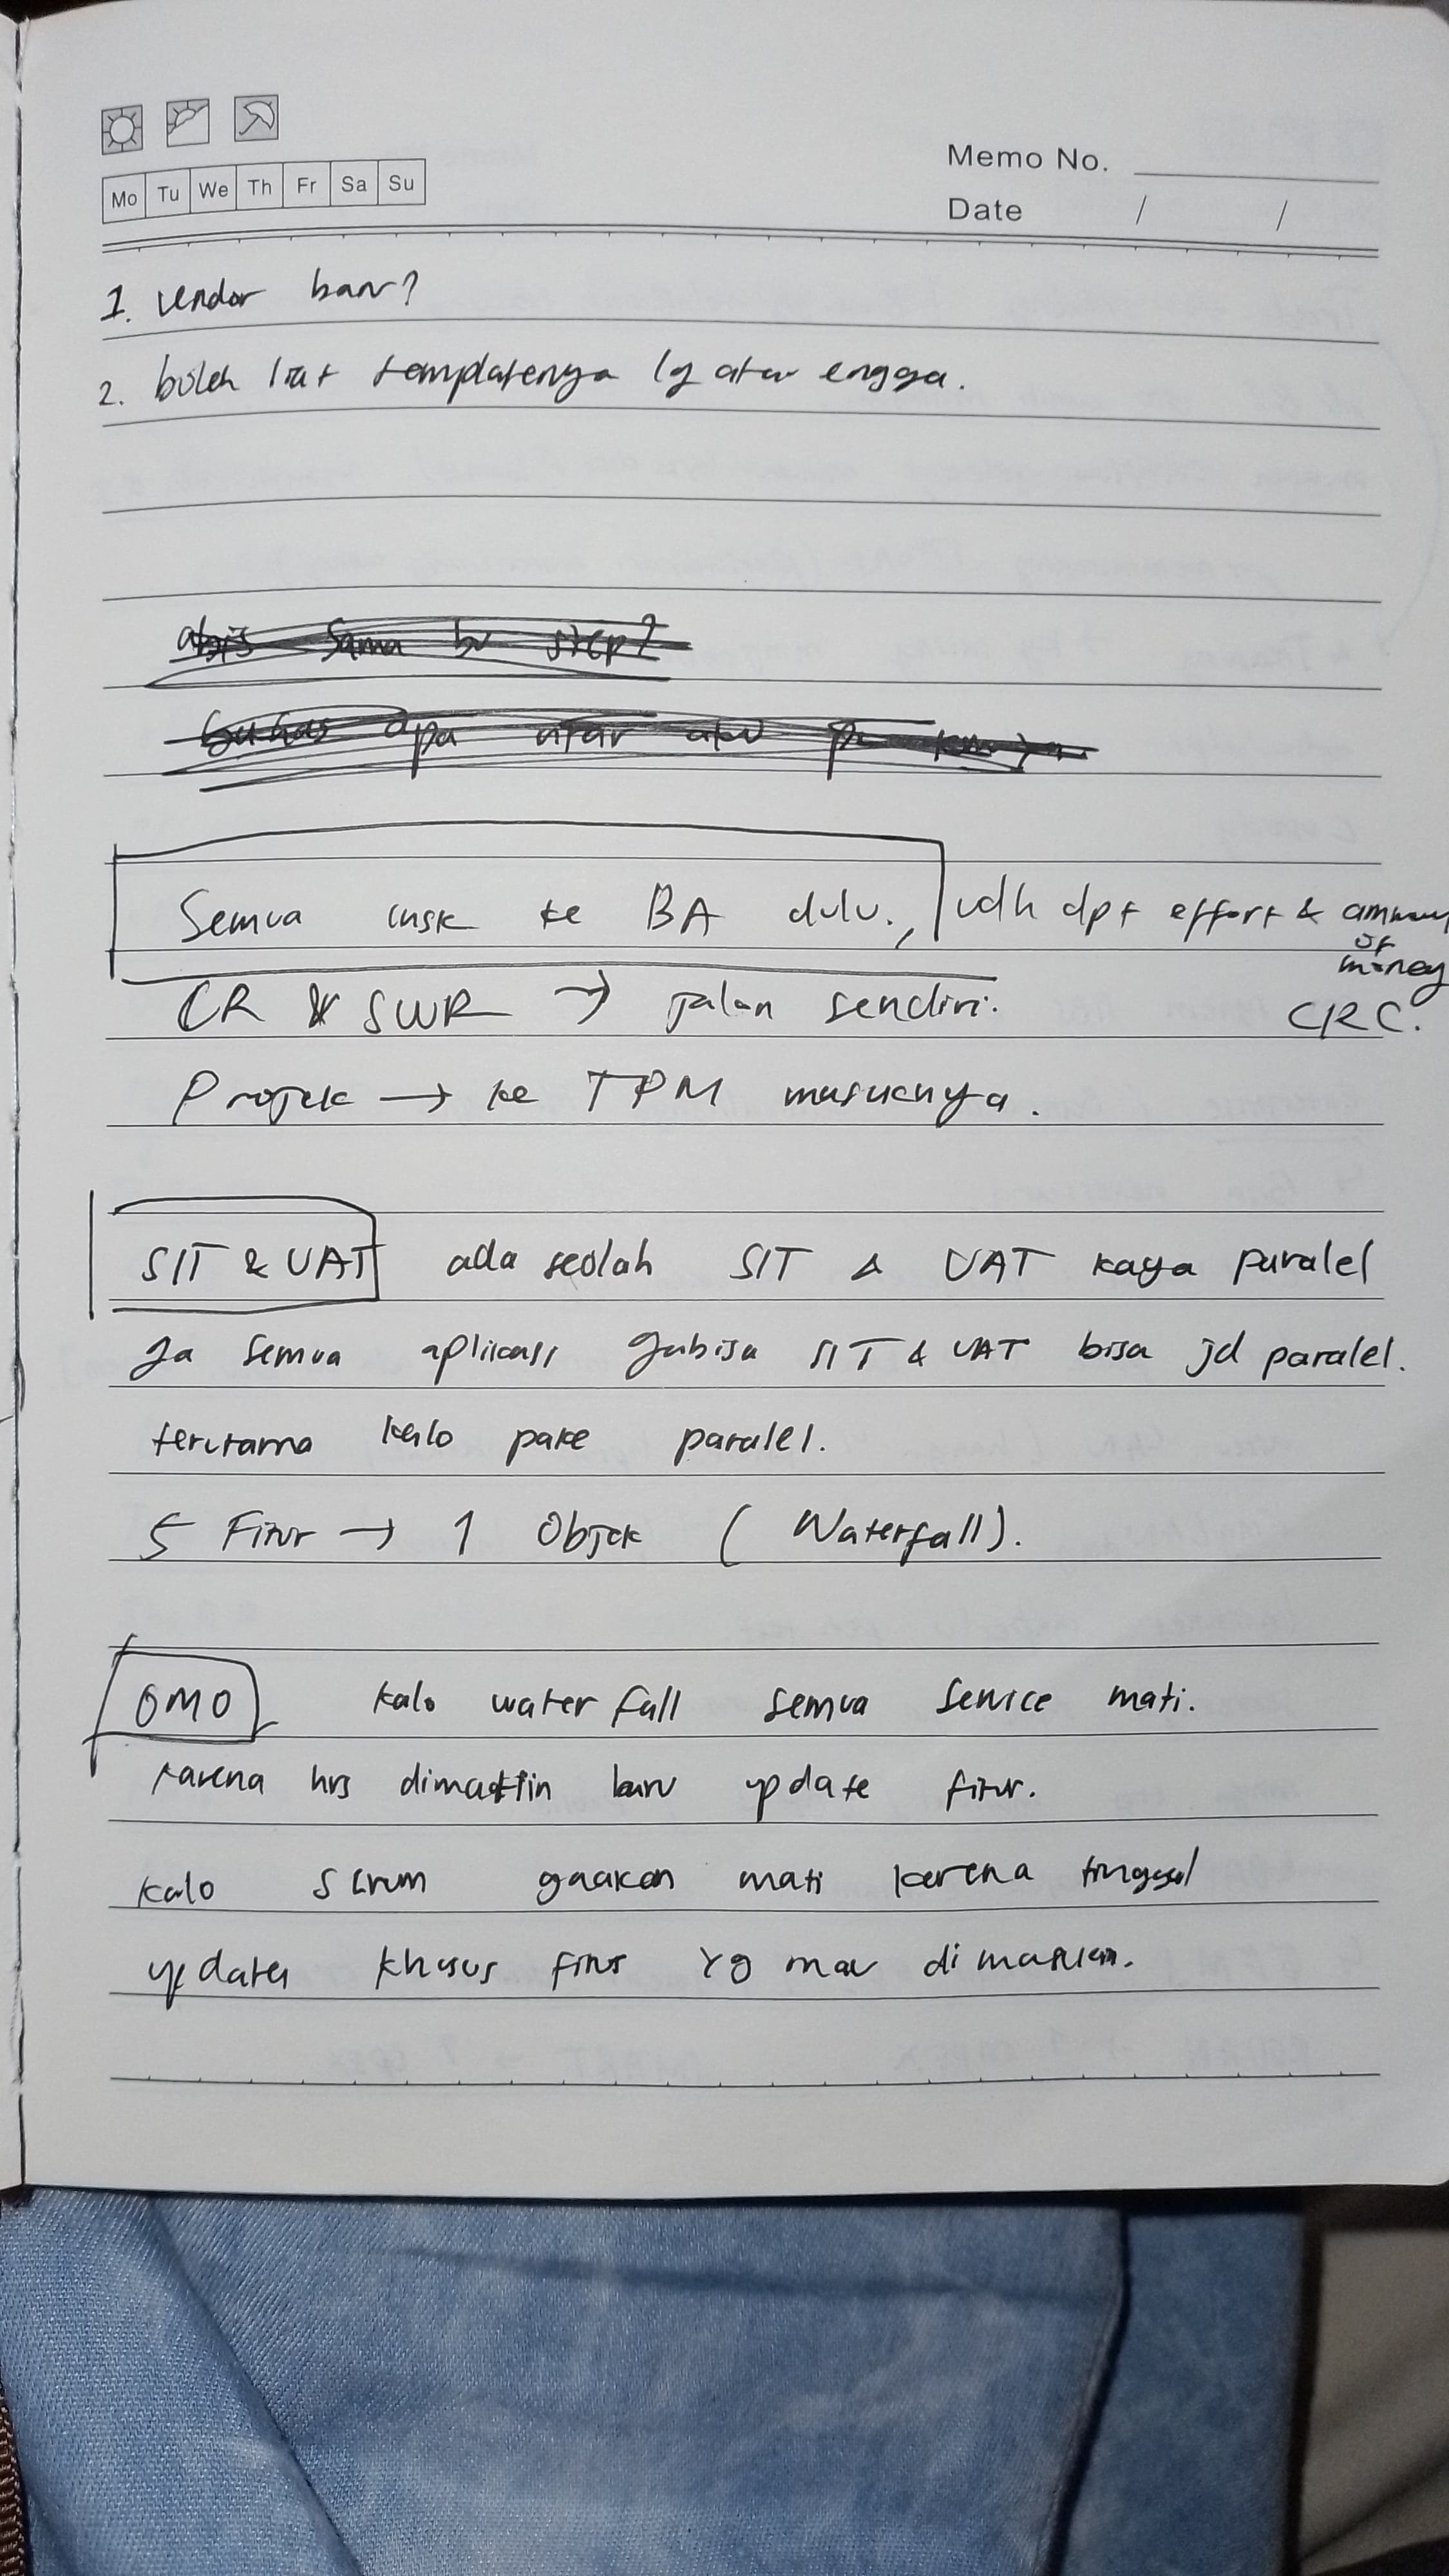 Mo Tu We Th Fr Sa Su
Memo No.
Date / /
1. vendor baru?
2. boleh liat templatenya lg atau engga.
abis sama bu step?
apa atau
Semua msk ke BA dulu., udh dpt effort & ammount of money
CR & SWR → jalan sendiri. CRC.
Projek → ke TPM masuknya.
SIT & UAT ada seolah SIT & UAT kaya paralel
ga semua aplikasi gabisa SIT & UAT bisa jd paralel.
terutama kalo pake paralel.
5 Fitur → 1 Objek (Waterfall).
OMO kalo waterfall semua service mati.
karena hrs dimatiin baru update fitur.
kalo scrum gaakan mati karena tinggal
updates khusus fitur yg mau dimatiin.